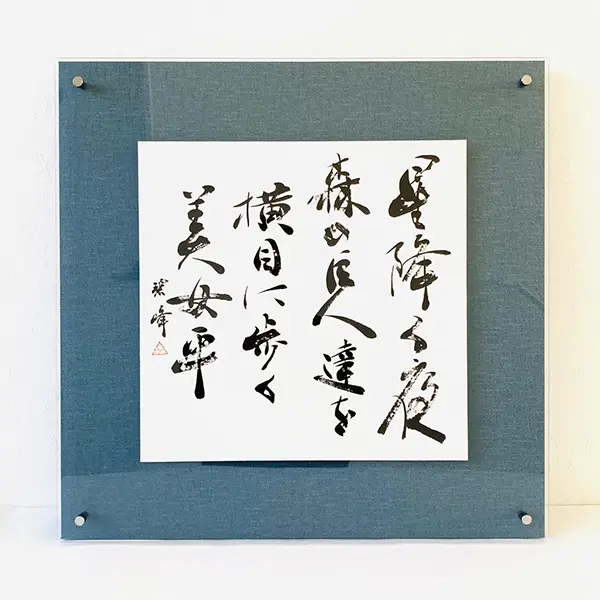 星降る夜
森の巨人達を
横目に歩く
美女平